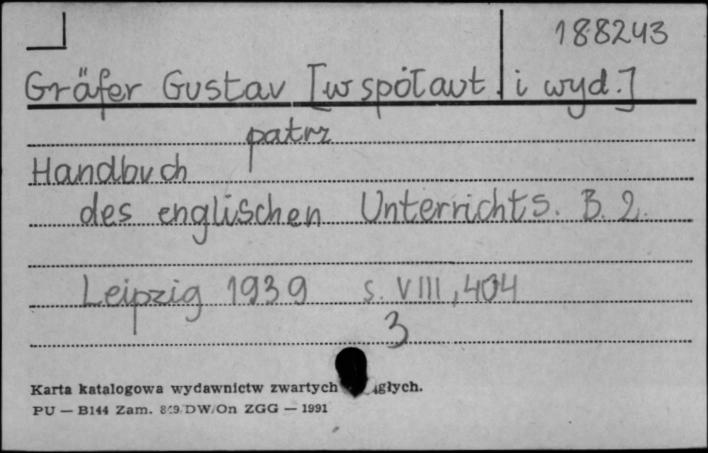 188243
Gräfer Gustav [współaut. i wyd.]
patrz
Handbuch
des englischen Unterrichts. B. 2.
Leipzig 1939 s. VIII, 404
3
Karta katalogowa wydawnictw zwartych
PU — B144 Zam. DW/On ZGG — 1991